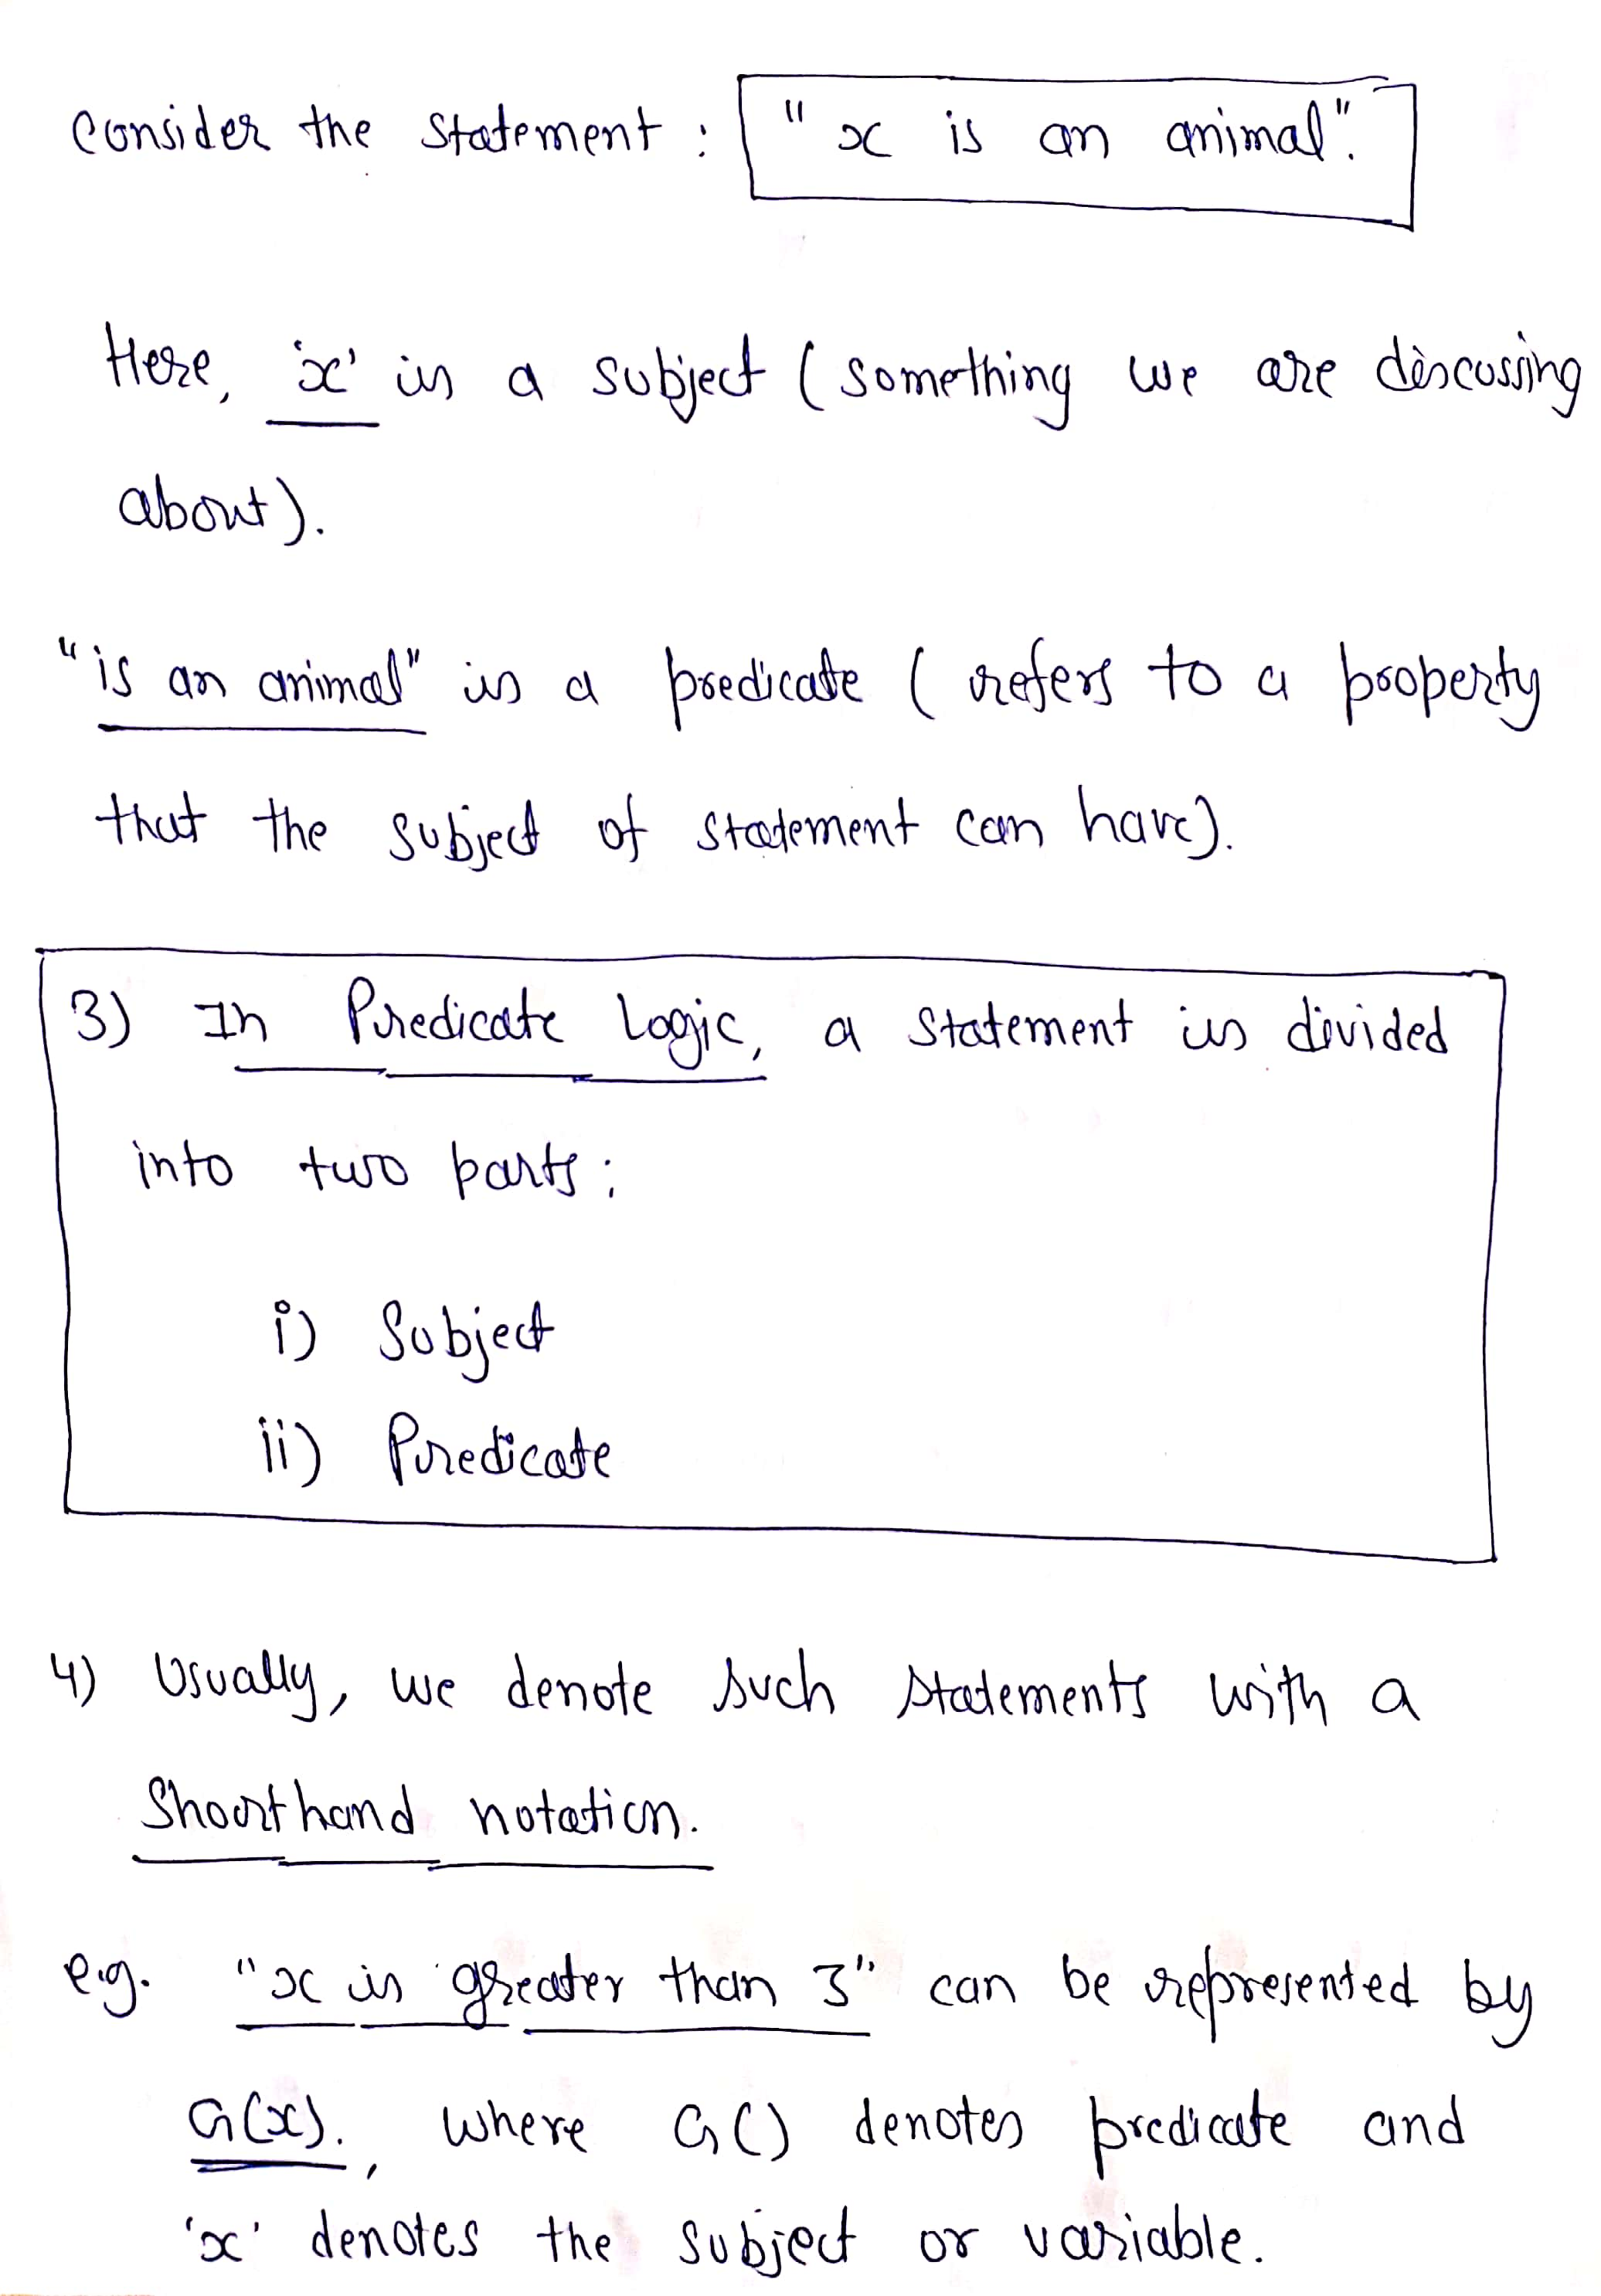 Consider the statement : "x is an animal".
Here, 'x' is a subject ( something we are discussing
about).
"is an animal" is a predicate ( refers to a property
that the subject of statement can have).
3) In Predicate Logic, a statement is divided
into two parts :
i) Subject
ii) Predicate
4) Usually, we denote such statements with a
Shorthand notation.
e.g. "x is greater than 3" can be represented by
G(x)., where G() denotes predicate and
'x' denotes the subject or variable.